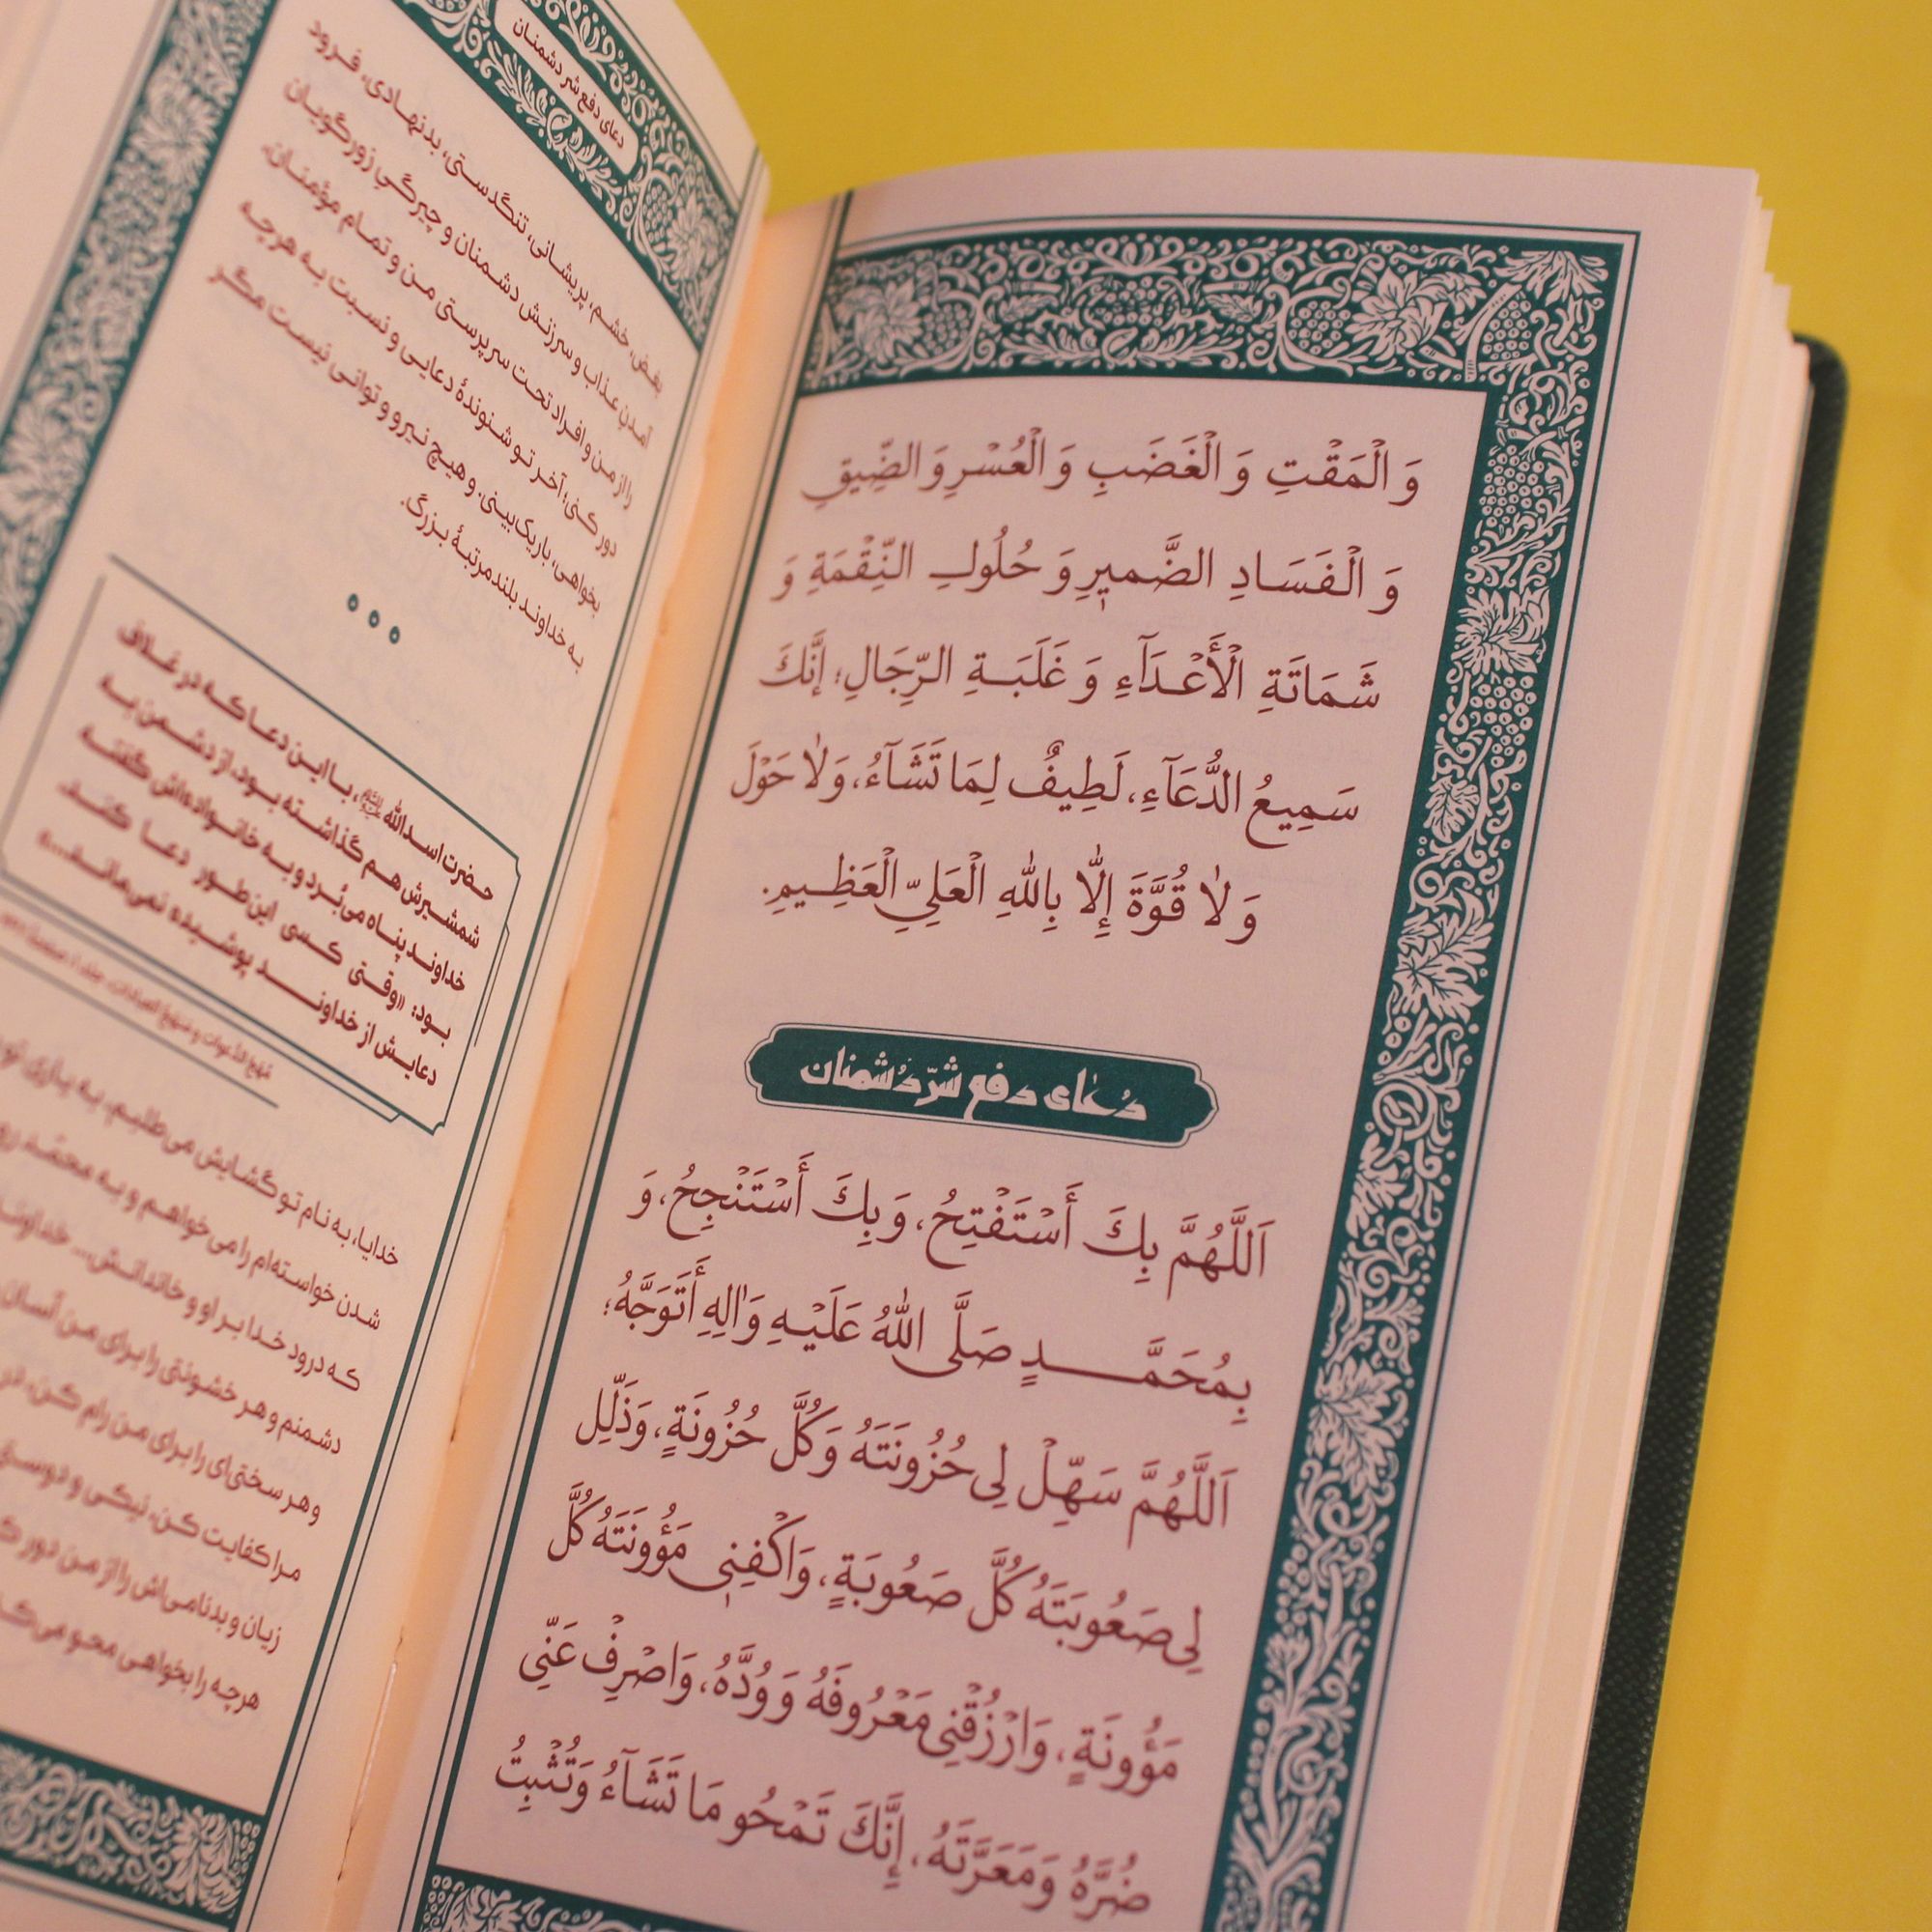 وَ الْمَقْتِ وَ الْغَضَبِ وَ الْعُسْرِ وَ الضِّيقِ
وَ الْفَسَادِ الضَّمِيرِ وَ حُلُولِ النِّقْمَةِ وَ
شَمَاتَةِ الْأَعْدَآءِ وَ غَلَبَةِ الرِّجَالِ؛ إِنَّكَ
سَمِيعُ الدُّعَآءِ، لَطِيفٌ لِمَا تَشَآءُ، وَلَا حَوْلَ
وَ لَا قُوَّةَ إِلَّا بِاللّٰهِ الْعَلِيِّ الْعَظِيمِ.
دُعای دفع شرّ دشمنان
اَللَّهُمَّ بِكَ أَسْتَفْتِحُ، وَبِكَ أَسْتَنْجِحُ، وَ
بِمُحَمَّدٍ صَلَّى اللّٰهُ عَلَيْهِ وَالِهِ أَتَوَجَّهُ؛
اَللَّهُمَّ سَهِّلْ لِى حُزُونَتَهُ وَكُلَّ حُزُونَةٍ، وَذَلِّل
لِى صَعُوبَتَهُ كُلَّ صَعُوبَةٍ، وَاكْفِنِى مَؤُونَتَهُ كُلَّ
مَؤُونَةٍ، وَارْزُقْنِى مَعْرُوفَهُ وَ وُدَّهُ، وَاصْرِفْ عَنِّى
ضُرَّهُ وَمَعَرَّتَهُ، إِنَّكَ تَمْحُو مَا تَشَآءُ وَتُثْبِتُ
دعای دفع شر دشمنان
بغض، خشم، پریشانی، تنگدستی، بدنهادی، فرود
آمدن عذاب و سرزنش دشمنان و چیرگی زورگویان
را از من و افراد تحت سرپرستی من و تمام مؤمنان،
دور کنی؛ آخر تو شنوندهٔ دعایی و نسبت به هرچه
بخواهی، باریک‌بینی. و هیچ نیرو و توانی نیست مگر
به خداوند بلندمرتبهٔ بزرگ.
حضرت اسدالله، با این دعا که در غلاف
شمشیرش هم گذاشته بود، از دشمن به
خداوند پناه می‌بُرد و به خانواده‌اش گفته
بود: «وقتی کسی این‌طور دعا کند،
دعایش از خداوند پوشیده نمی‌ماند...»
مهج الدعوات و منهج العبادات، جلد ۱، صفحهٔ
خدایا، به نام تو گشایش می‌طلبم، به یاری تو
شدن خواسته‌ام را می‌خواهم و به محمّد
که درود خدا بر او و خاندانش...
دشمنم و هر خشونتی را برای من آسان
و هر سختی‌ای را برای من رام کن،
مرا کفایت کن، نیکی و
زیان و بدنامی‌اش را از من دور
هرچه را بخواهی محو